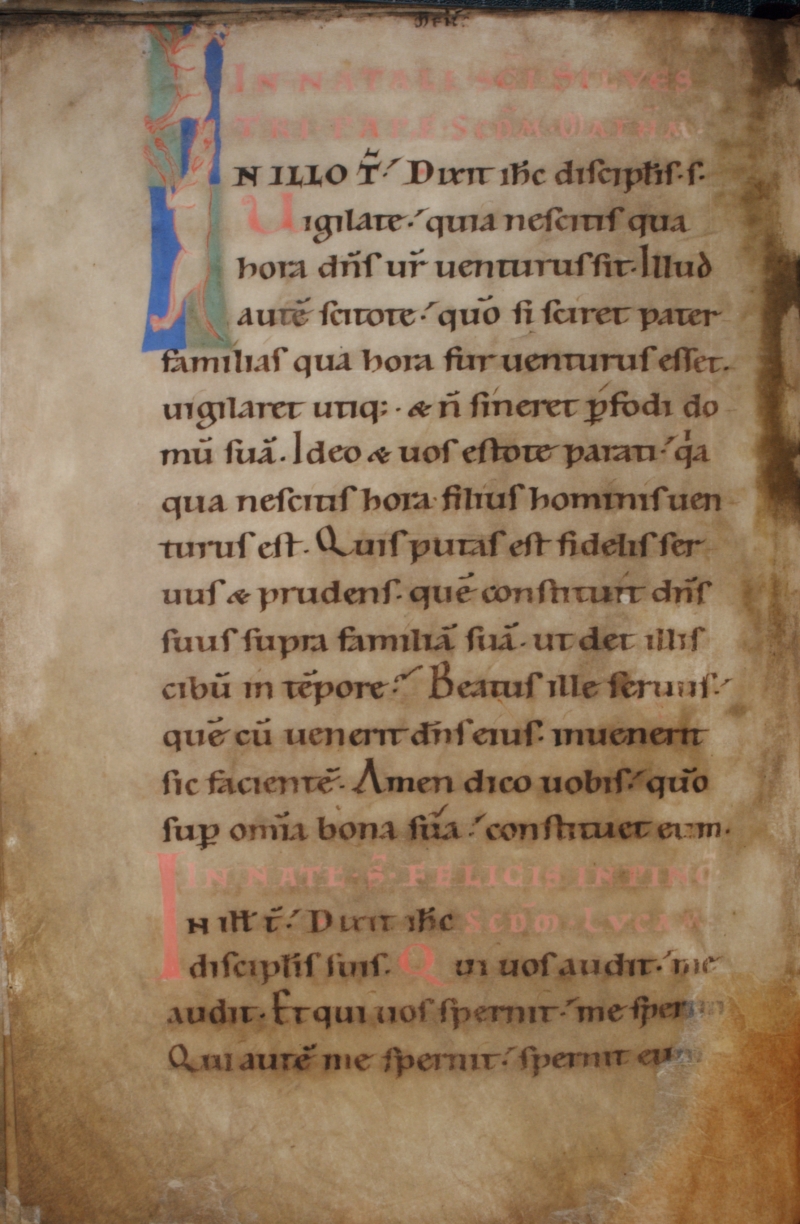 IN NATALI SC̄I SILVES
TRI PAPE. SCDM̄. MATHM̄.
N ILLO T̄. Dixit ih̄c discipl̄is. s.
Uigilate. quia nescitis qua
hora dn̄s ur̄ uenturus sit. Illud
autē scitote. quō si sciret pater
familias qua hora fur uenturus esset.
uigilaret utiq;. & n̄ sineret ꝑfodi do
mū suā. Ideo & uos estote parati. qa
qua nescitis hora filius hominis uen
turus est. Quis putas est fidelis ser
uus & prudens. quē constituit dn̄s
suus supra familiā suā. ut det illis
cibū in tēpore. Beatus ille seruus.
quē cū uenerit dn̄s eius. inuenerit
sic facientē. Amen dico uobis. quō
suꝑ om̄ia bona sua. constituet eum.
IN NATL̄. S̄. FELICIS IN PINC
IN ill̄ t̄. Dixit ih̄c SCDM̄. LVCA
discipl̄is suis. Qui uos audit. me
audit. Et qui uos spernit. me sper
Qui autē me spernit. spernit eu